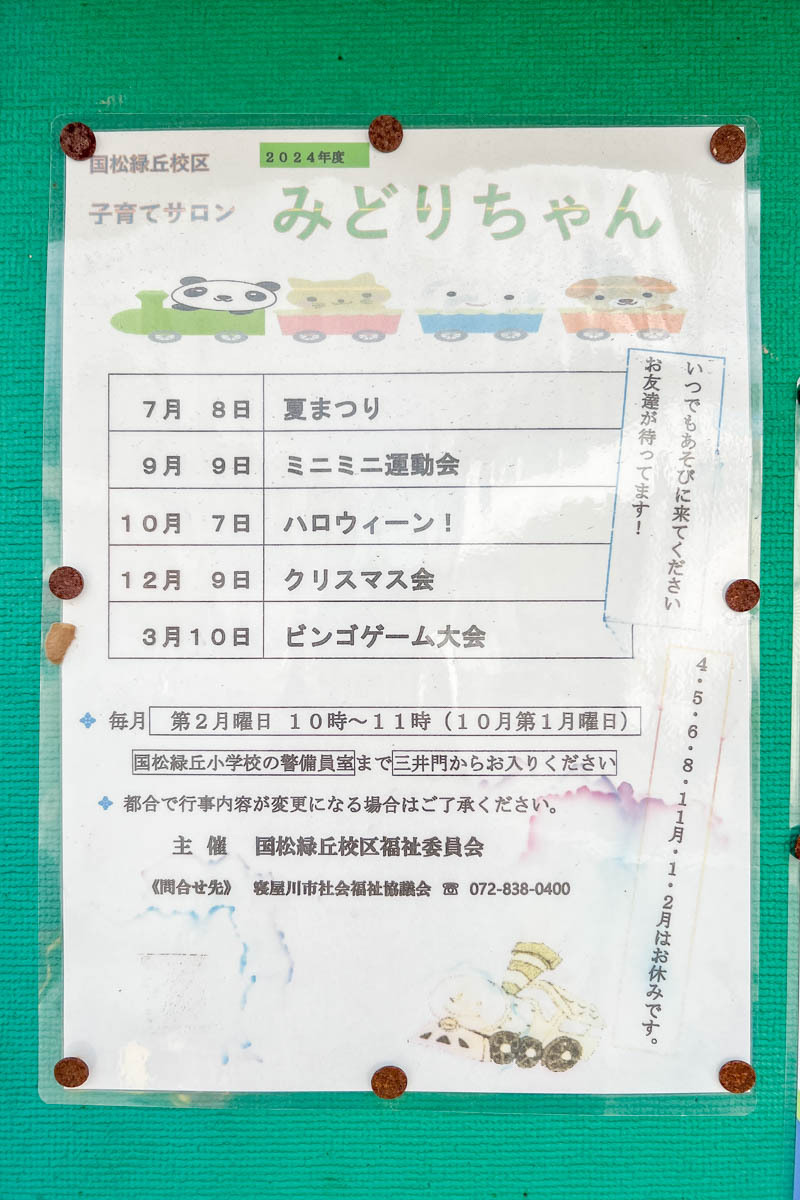 国松緑丘校区
2024年度
子育てサロン
みどりちゃん
7月 8日 夏まつり
9月 9日 ミニミニ運動会
10月 7日 ハロウィーン！
12月 9日 クリスマス会
3月10日 ビンゴゲーム大会
いつでもあそびに来てください
お友達が待ってます！
4・5・6・8・11月・1・2月はお休みです。
毎月 第2月曜日 10時～11時（10月第1月曜日）
国松緑丘小学校の警備員室まで三井門からお入りください
都合で行事内容が変更になる場合はご了承ください。
主 催 国松緑丘校区福祉委員会
《問合せ先》 寝屋川市社会福祉協議会 ☎ 072-838-0400